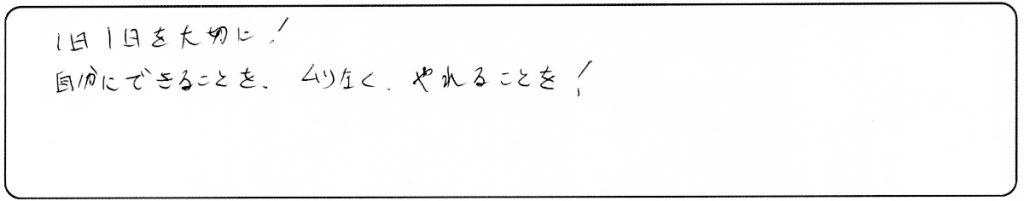 1日1日を大切に!
自分にできることを、ムリなく、やれることを!